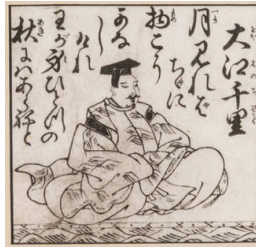 大江千里
月みれば
ちゞに
物こそ
かな
し
けれ
わが身ひとつの
秋にはあらねど